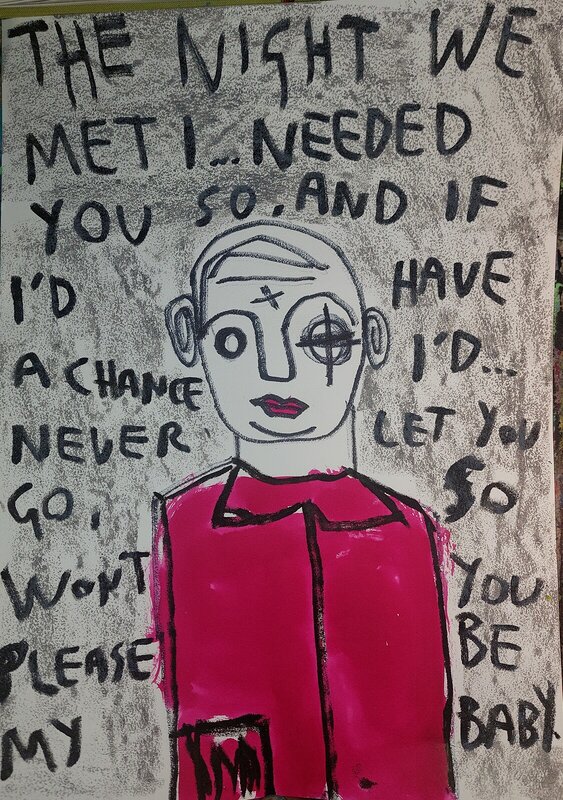 THE NIGHT WE
MET I...NEEDED
YOU SO, AND IF
I'D HAVE
A CHANCE I'D...
NEVER LET YOU
GO, SO
WONT YOU
PLEASE BE
MY BABY.